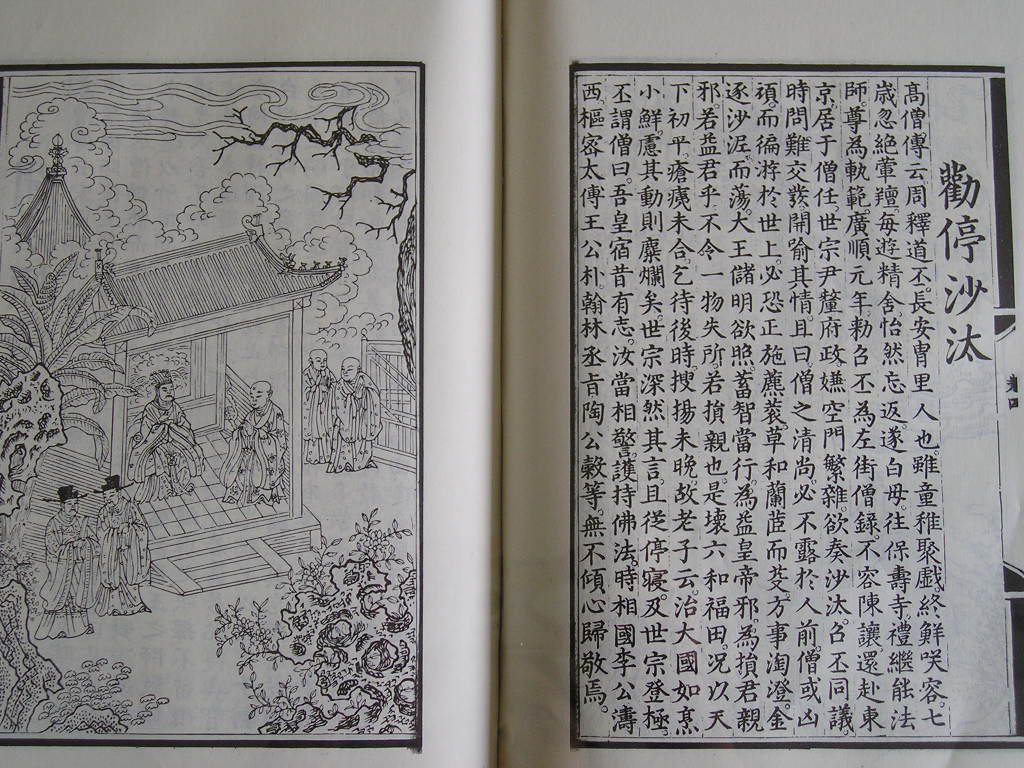 勸停沙汰
高僧傳云周釋道丕。長安胄里人也。雖童稚聚戲終鮮笑容。七
歲忽絕葷羶。每遊精舍怡然忘返。遂白母。往保壽寺禮繼能法
師。尊為軌範。廣順元年勅召丕為左街僧錄。不容陳讓。還赴東
京。居于僧任。世宗尹釐府政。嫌空門繁雜。欲奏沙汰。召丕同議
時問難交發。開喻其情。且曰僧之清尚。必不露於人前。僧或凶
頑。而徧游於世上。必恐正施薦蓘。草和蘭茝而芟。方事淘澄。金
逐沙泥而蕩。大王儲明欲照。蓄智當行。為益皇帝邪。為損君親
邪。若益君乎。不令一物失所。若損親也。是壞六和福田。况以天
下初平。瘡痍未合。乞待後時。搜揚未晚。故老子云。治大國如烹
小鮮。慮其動則糜爛矣。世宗深然其言。且從停寢。及世宗登極
丕謂僧曰。吾皇宿昔有志。汝當相警。護持佛法。時相國李公濤
西樞密太傅王公朴。翰林丞旨陶公縠等。無不傾心歸敬焉。
卷四